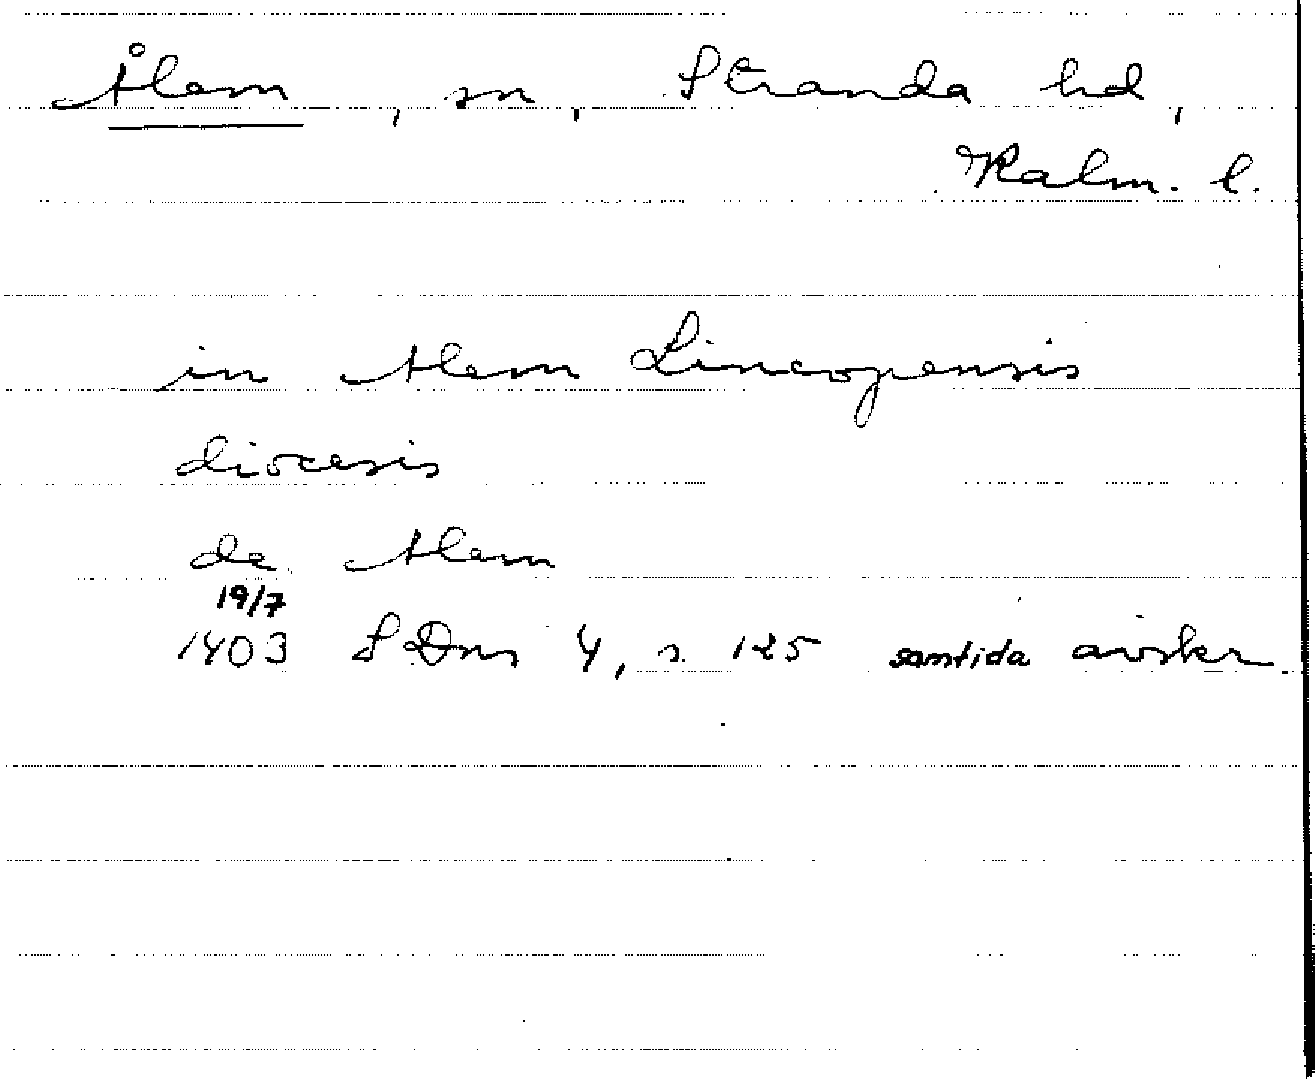 Ålem, sn, Stranda hd,
Kalm. l.
in Alem Lincopensis
diocesis
de Alem
19/7
1403 SDns 4, s. 125 samtida avskr